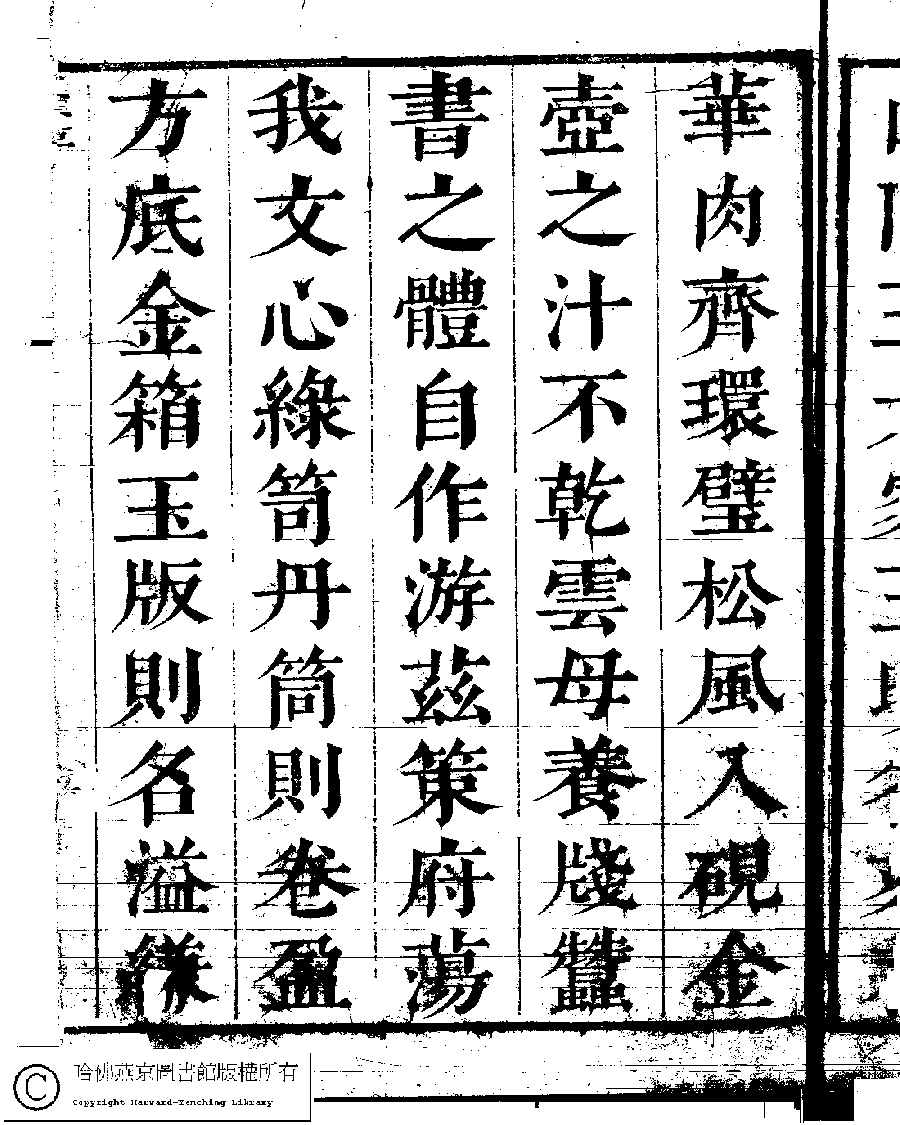 華肉齊環璧松風入硯金
壺之汁不乾雲母養牋蠶
書之體自作游茲策府蕩
我文心綠笥丹筒則卷盈
方底金箱玉版則名溢
哈佛燕京圖書館版權所有
Copyright Harvard-Yenching Library